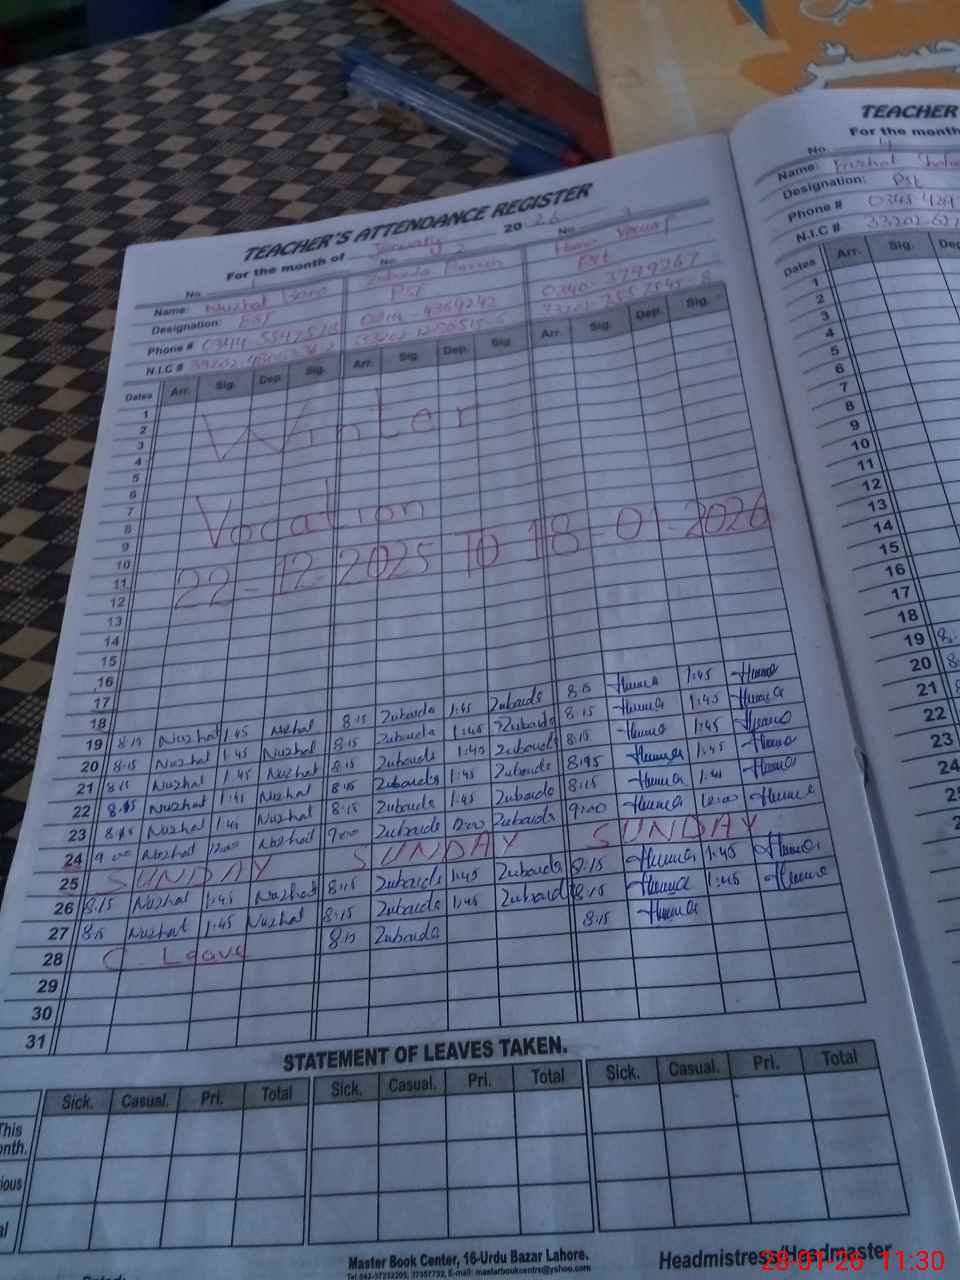 TEACHER'S ATTENDANCE REGISTER
For the month of January 20 26
No. 1 No. 2 No. 3
Name: Nuzhat Zubaida
Designation: EST PST PSt
Phone # 0344 0340-3799267
N.I.C #
Dates Arr. Sig. Dep. Sig. Arr. Sig. Dep. Sig. Arr. Sig. Dep. Sig.
1
2
3
4
5
6
7
8
9
10
11
12
13
14
15
16
17
18
Winter
Vocation
22-12-2025 To 18-01-2026
19 8:15 Nuzhat 1:45 Nuzhat 8:15 Zubaida 1:45 Zubaida 8:15 Huma 1:45 Huma
20 8:15 Nuzhat 1:45 Nuzhat 8:15 Zubaida 1:45 Zubaida 8:15 Huma 1:45 Huma
21 8:15 Nuzhat 1:45 Nuzhat 8:15 Zubaida 1:45 Zubaida 8:15 Huma 1:45 Huma
22 8:15 Nuzhat 1:45 Nuzhat 8:15 Zubaida 1:45 Zubaida Huma 1:45 Huma
23 8:15 Nuzhat 1:45 Nuzhat 8:15 Zubaida 1:45 Zubaida 8:15 Huma Huma
24 9:00 Nuzhat 12:00 Nuzhat 9:00 Zubaida 12:00 Zubaida 9:00 Huma 12:00 Huma
25 SUNDAY SUNDAY SUNDAY
26 8:15 Nuzhat 1:45 Nuzhat 8:15 Zubaida 1:45 Zubaida 8:15 Huma 1:45 Huma
27 8:15 Nuzhat 1:45 Nuzhat 8:15 Zubaida 1:45 Zubaida 8:15 Huma 1:45 Huma
28 C. Leave 8:15 Zubaida 8:15 Huma
29
30
31
STATEMENT OF LEAVES TAKEN.
Sick. Casual. Pri. Total Sick. Casual. Pri. Total Sick. Casual. Pri. Total
This
Master Book Center, 16-Urdu Bazar Lahore.
Headmistress/Headmaster
TEACHER
For the month
No. 4
Name:
Designation: PSt
Phone # 0345
N.I.C #
Dates Arr. Sig.
1
2
3
4
5
6
7
8
9
10
11
12
13
14
15
16
17
18
19
20
21
22
23
24
28-01-26 11:30